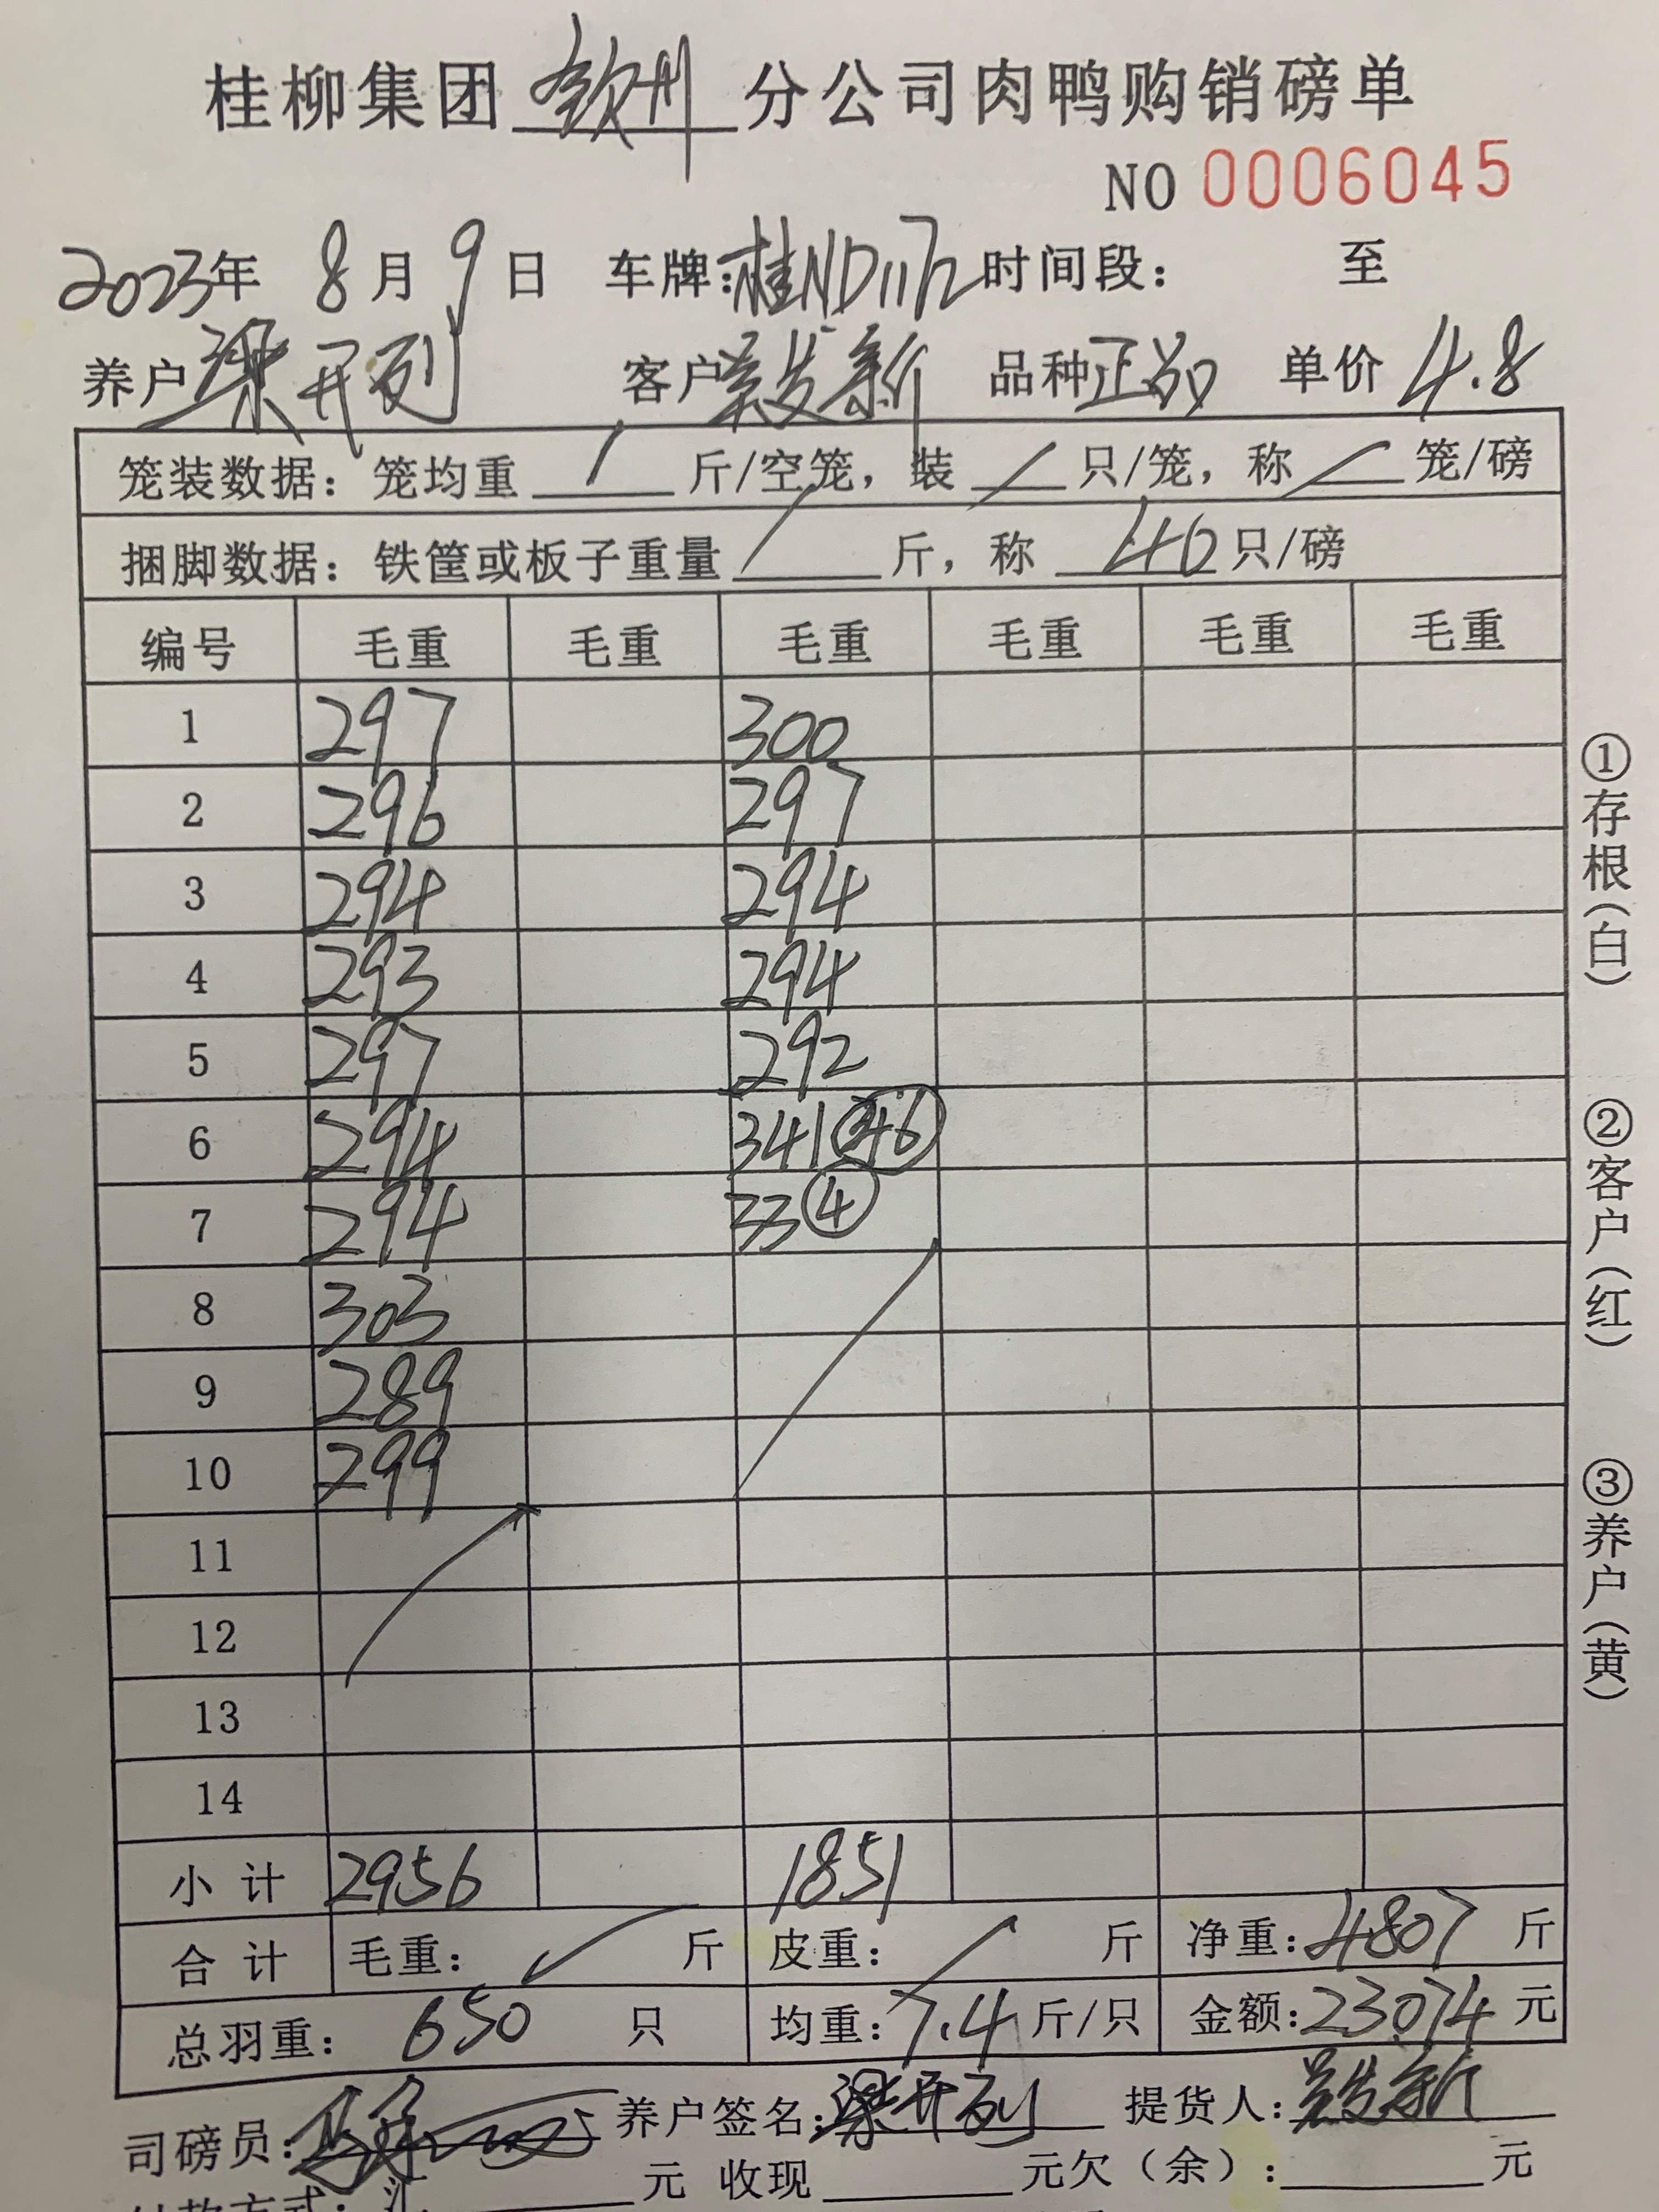 桂柳集团钦州分公司肉鸭购销磅单
NO 0006045
2023年 8月 9日 车牌:桂ND1172 时间段: 至
养户 梁开列 客户 发新 品种 正品 单价 4.8
笼装数据: 笼均重 / 斤/空笼, 装 / 只/笼, 称 / 笼/磅
捆脚数据: 铁筐或板子重量 / 斤, 称 40 只/磅
编号 毛重 毛重 毛重 毛重 毛重 毛重
1 297 300
2 296 297
3 294 294
4 293 294
5 297 292
6 294 341 46
7 294 33 ④
8 303
9 289
10 299
11
12
13
14
小计 2956 1851
合计 毛重: 斤 皮重: 斤 净重: 4807 斤
总羽重: 650 只 均重: 7.4 斤/只 金额: 23074 元
司磅员: 养户签名: 梁开列 提货人: 发新
付款方式: 汇 元 收现 元欠(余): 元
①存根(白)
②客户(红)
③养户(黄)